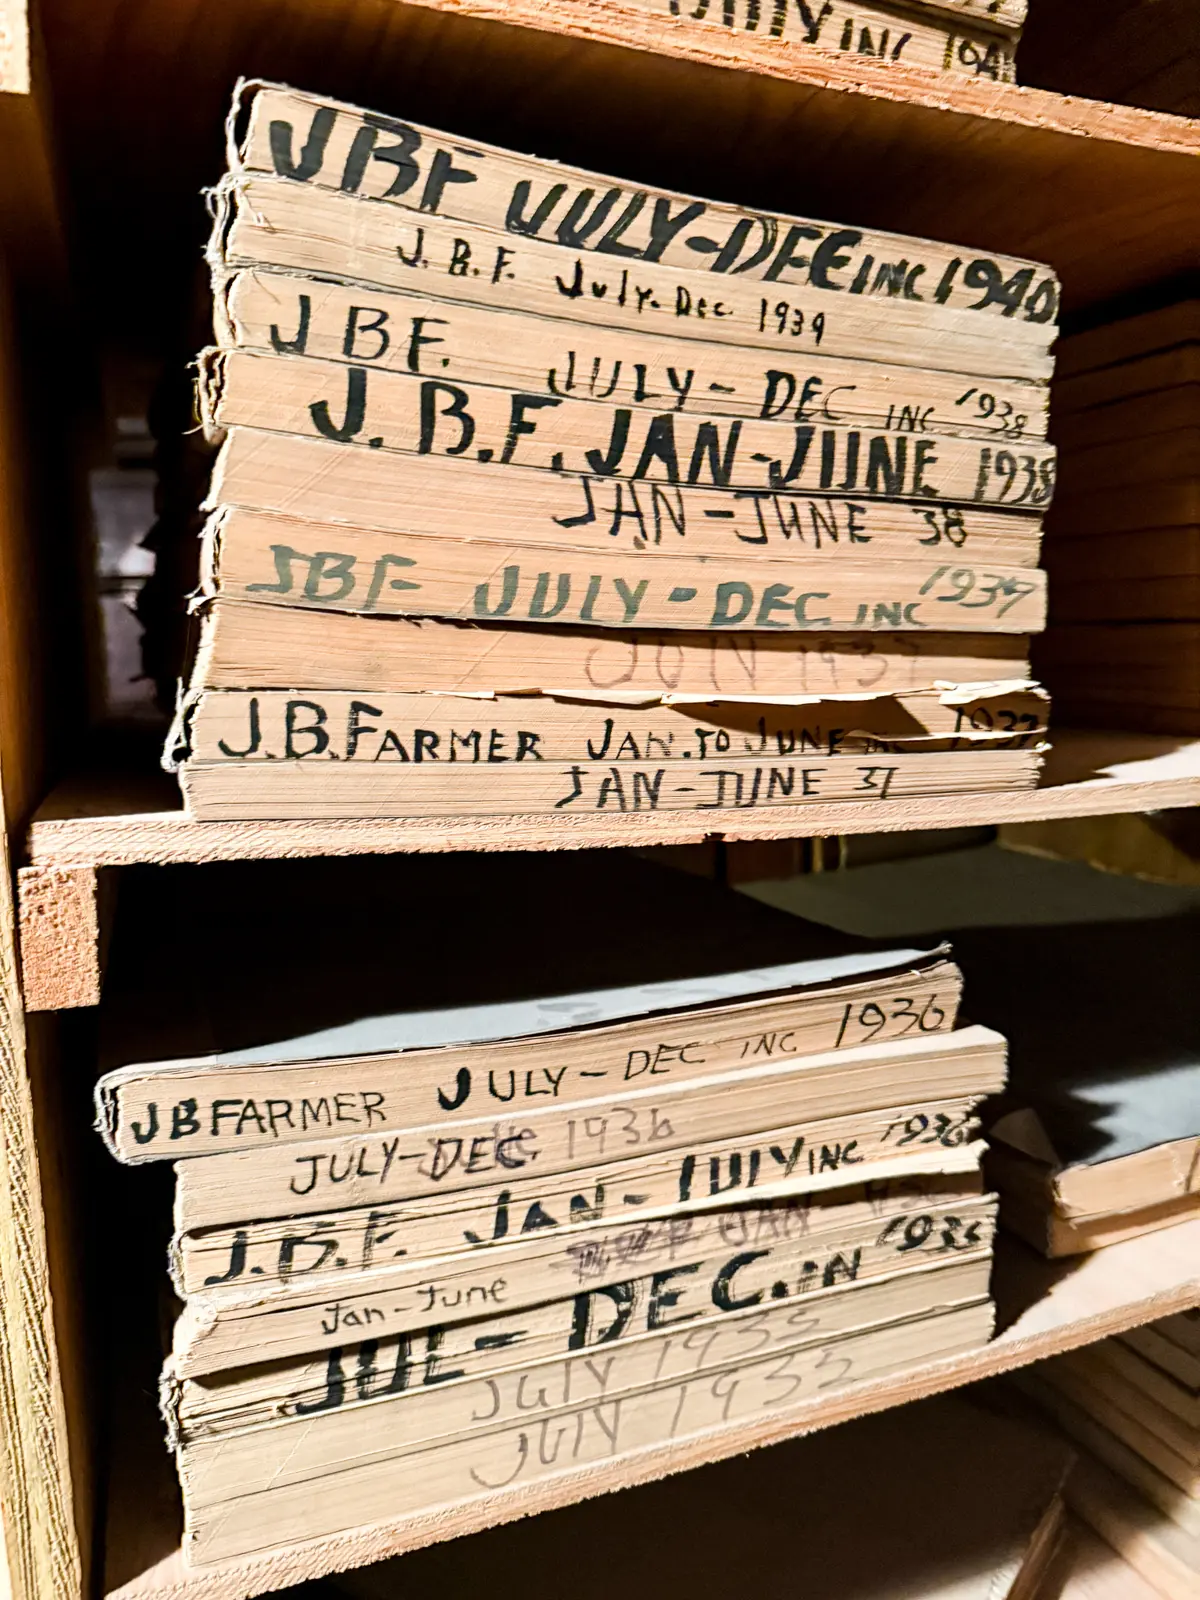 INC 194
JBF JULY-DEC INC 1940
J.B.F. July-Dec 1939
JBF. JULY-DEC INC 1938
J.B.F. JAN-JUNE 1938
JAN-JUNE 38
JBF JULY-DEC INC 1937
JULY 1937
J.B.FARMER JAN.TO JUNE INC 1937
JAN-JUNE 37
JBFARMER JULY-DEC INC 1936
JULY-DEC. 1936
J.B.F. JAN-JULY INC 1936
JAN
Jan-June
JUL-DEC.IN 1935
JULY 1935
JULY 1935